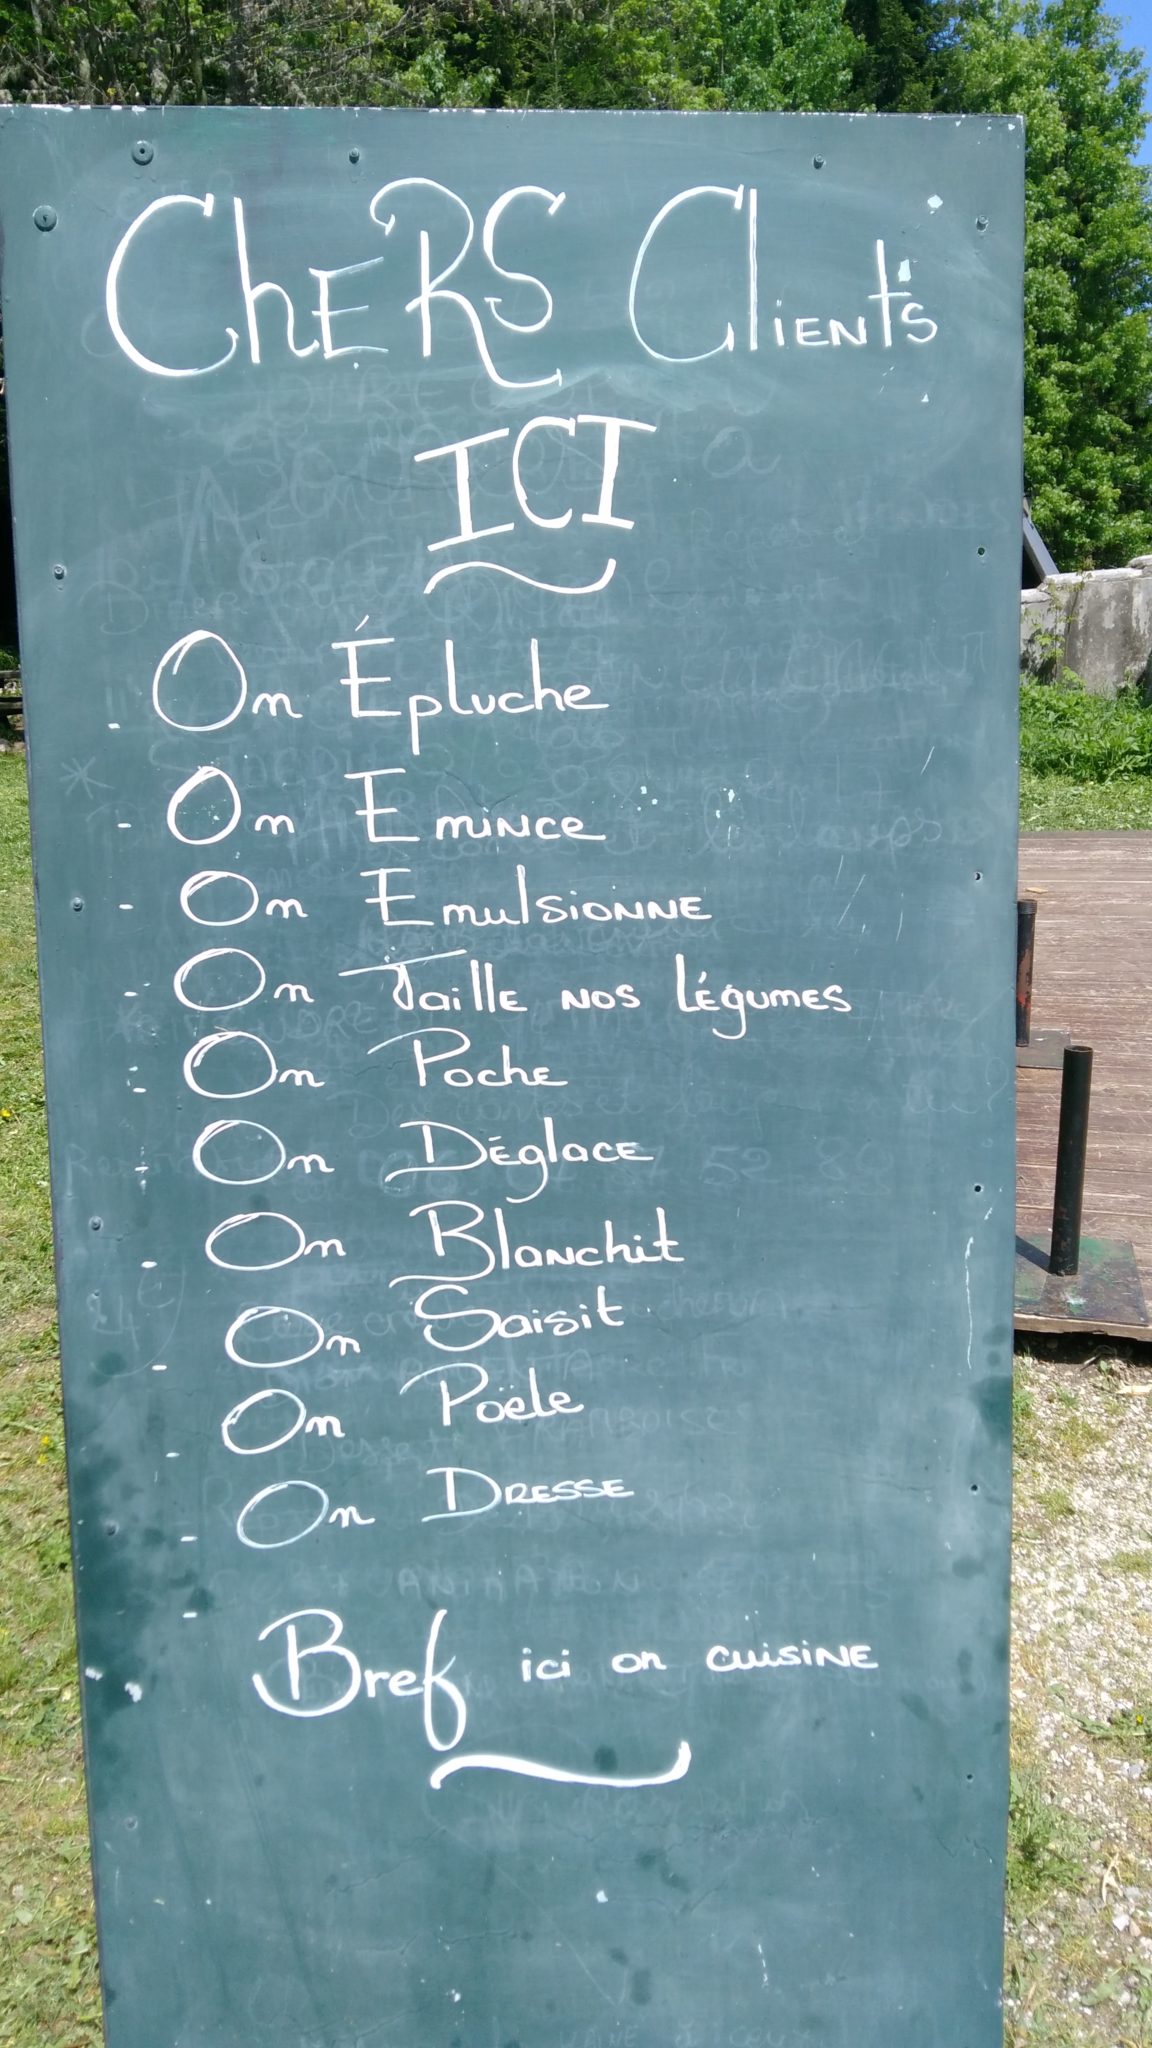 Chers Clients
ICI
- On Épluche
- On Emince
- On Emulsionne
- On Taille nos légumes
- On Poche
- On Déglace
- On Blanchit
- On Saisit
- On Poële
- On Dresse
- Bref ici on cuisine